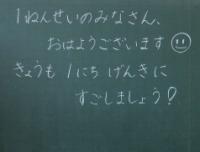 1ねんせいのみなさん、
おはようございます
きょうも 1にち げんきに
すごしましょう?